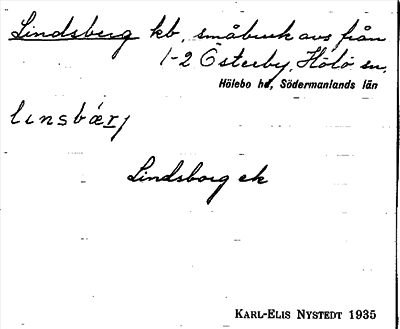 Lindsberg kb. småbruk avs från
1-2 Österby, Hölö sn.
Hölebo hd, Södermanlands län
linsbærj
Lindsborg ek
KARL-ELIS NYSTEDT 1935